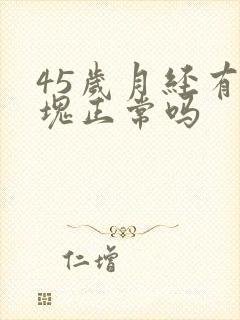 45歲月经有
塊正常吗
仁增